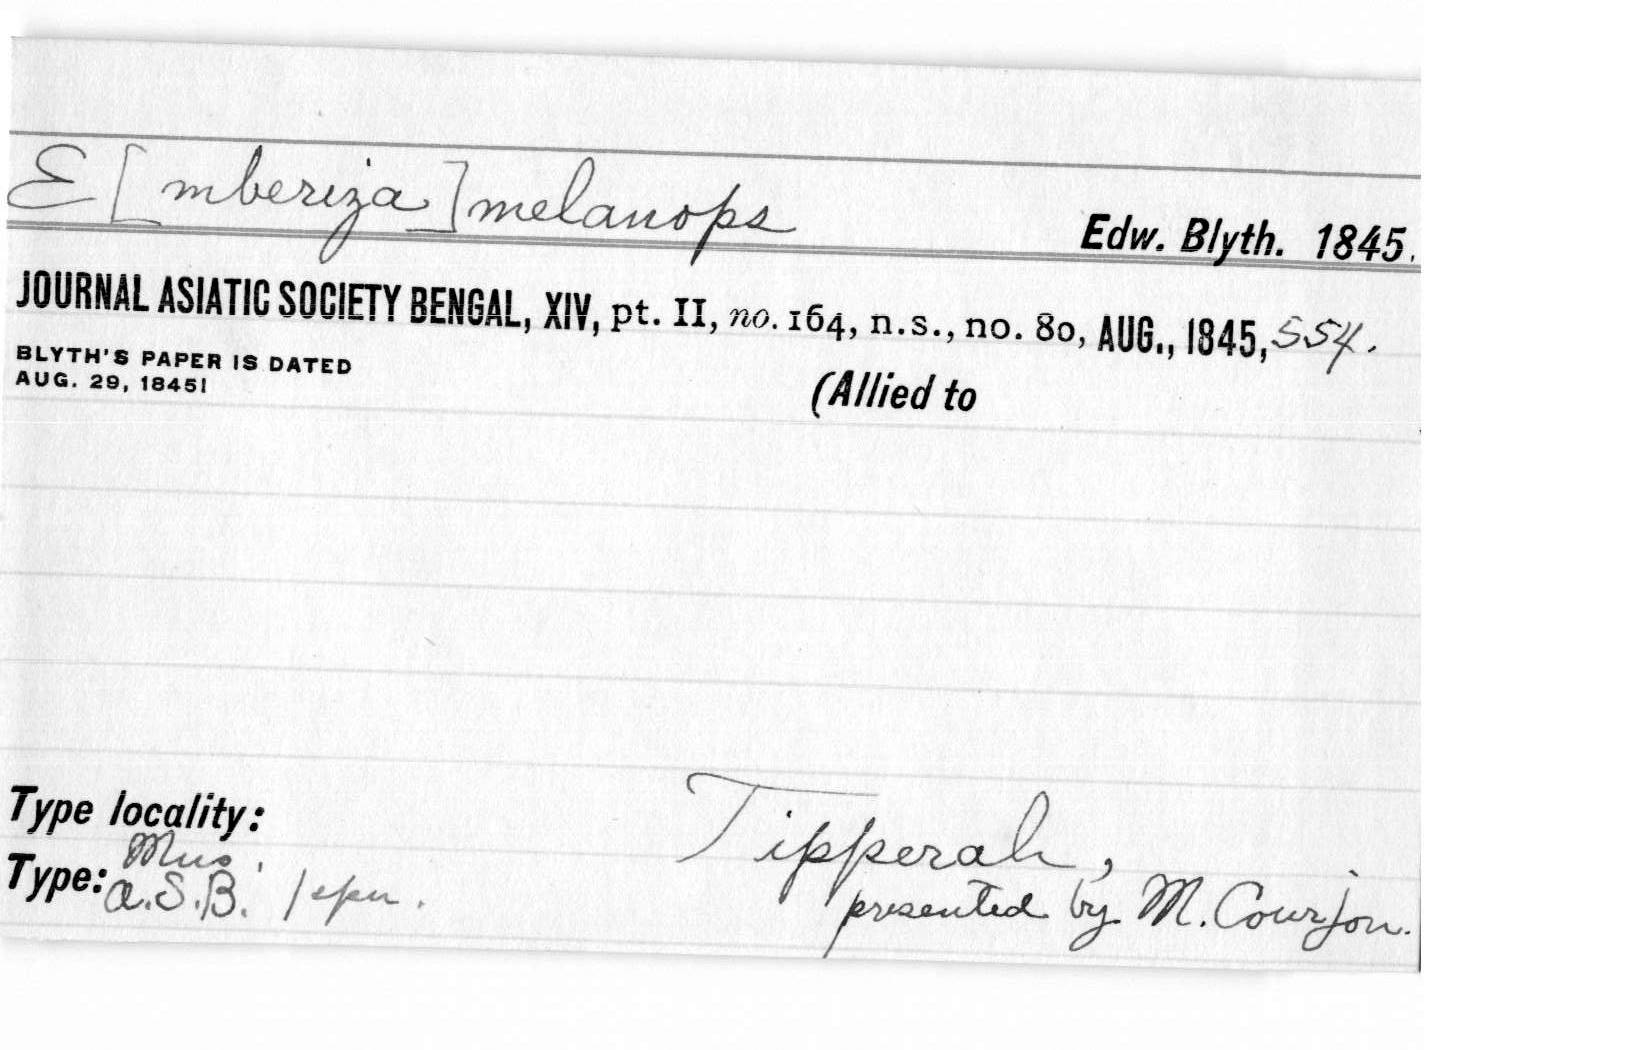 E[mberiza] melanops Edw. Blyth. 1845.
JOURNAL ASIATIC SOCIETY BENGAL, XIV, pt. II, no. 164, n.s., no. 80, AUG., 1845, 554.
BLYTH'S PAPER IS DATED
AUG. 29, 1845!
(Allied to
Type locality: Tipperah,
presented by M. Courjon.
Type: Mus.
A.S.B. 1 spm.